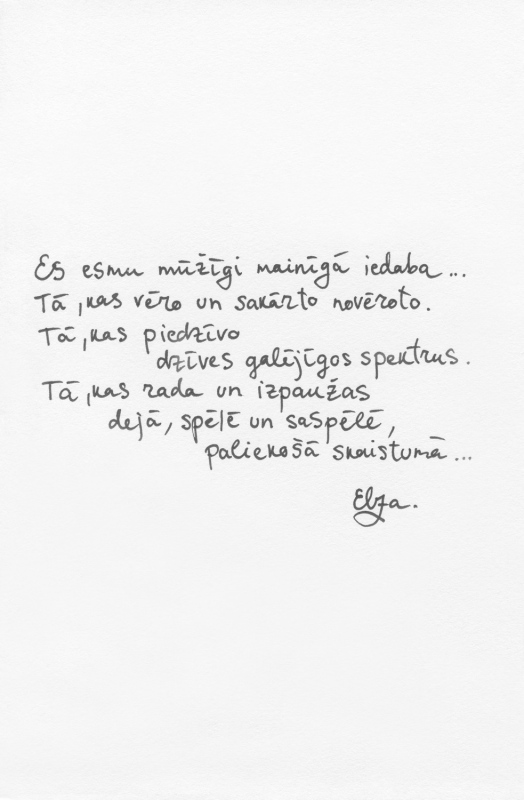 Es esmu mūžīgi mainīgā iedaba...
Tā, kas vēro un sakārto novēroto.
Tā, kas piedzīvo
dzīves galējīgos spektrus.
Tā, kas rada un izpaužas
dejā, spēlē un saspēlē,
paliekošā skaistumā...
Elza.